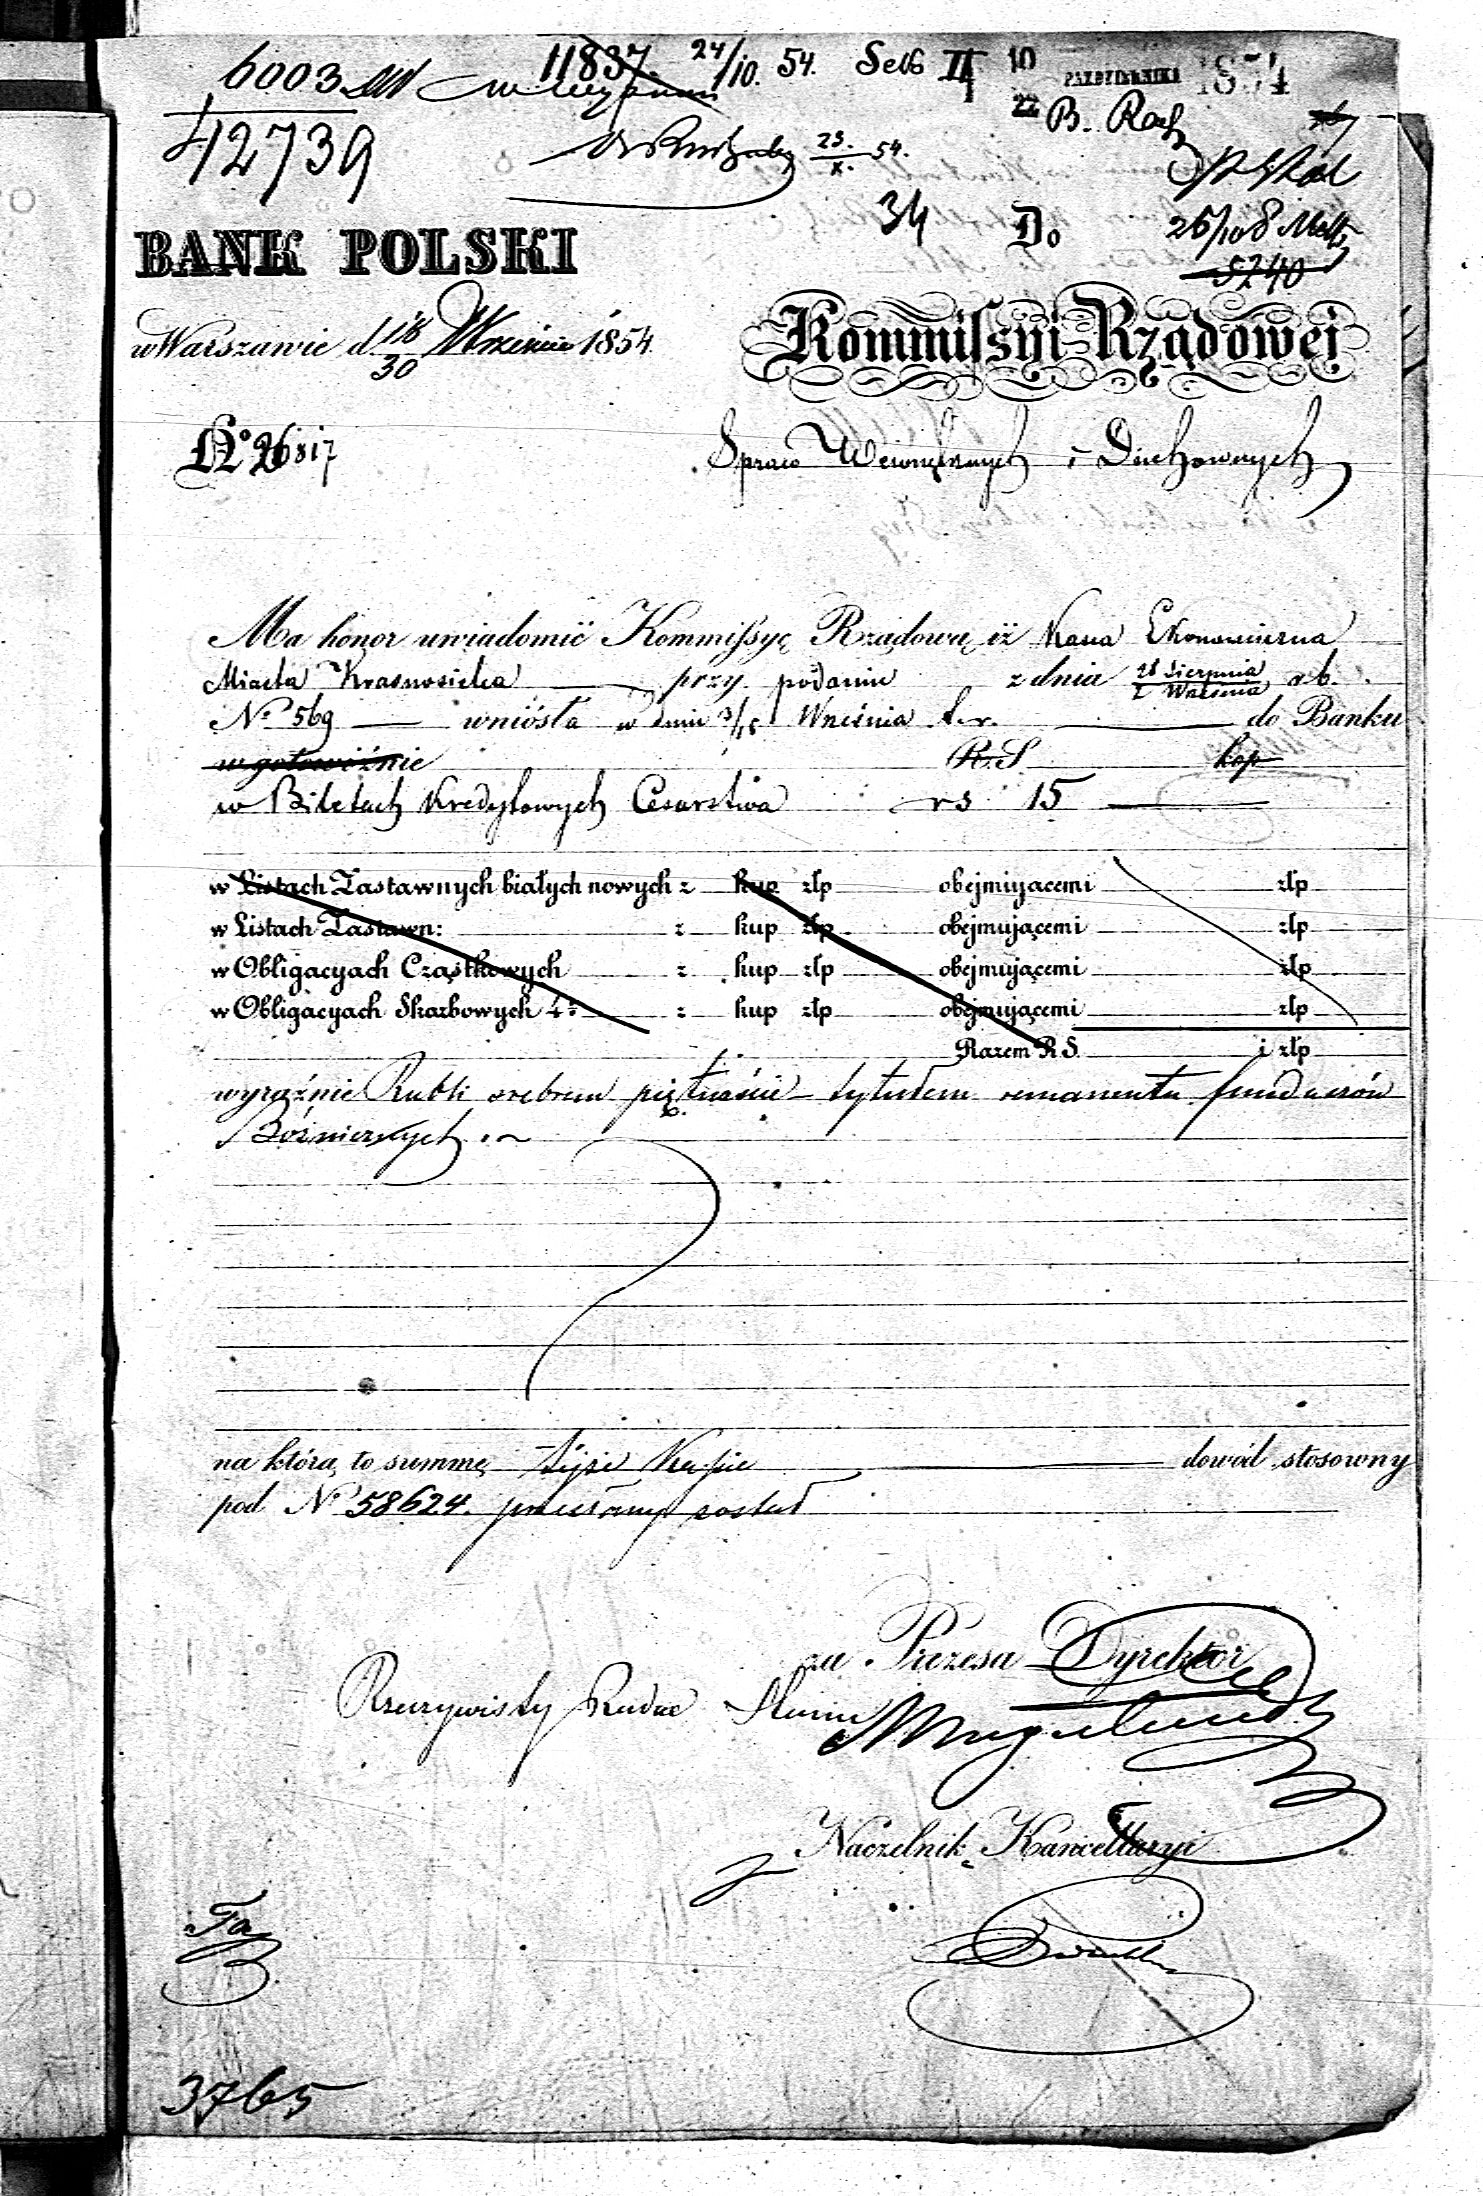 6003
42739
11837. 24/10. 54. Sek II
10 PAZDZIERNIKA 1854
22 B. Rach
23/X. 54.
34
26/10 8
5240
BANK POLSKI
Do
Kommissyi Rządowej
w Warszawie d 18/30 Września 1854
No 26817
Spraw Wewnętrznych i Duchownych
Ma honor uwiadomić Kommissyę Rządową iż Kassa Ekonomiczna
Miasta Krasnosielca przy podaniu z dnia 21 Sierpnia / 2 Września r b.
No 569 wniosła w dniu 3/15 Września t. r. do Banku
w gotowiźnie R.S kop
w Biletach Kredytowych Cesarstwa rs 15
w Listach Zastawnych białych nowych z kup złp obejmującemi złp
w Listach Zastawn: z kup złp obejmującemi złp
w Obligacyach Cząstkowych z kup złp obejmującemi złp
w Obligacyach Skarbowych 4% z kup złp obejmującemi złp
Razem R S. i złp
wyraźnie Rubli srebrem piętnaście tytułem remanentu funduszów
Bóżniczych.
na którą to summę tejże Kassie dowód stosowny
pod No 58624. przesłany został
za Prezesa Dyrektor
Rzeczywisty Radca Stanu
Naczelnik Kancellaryi
3765